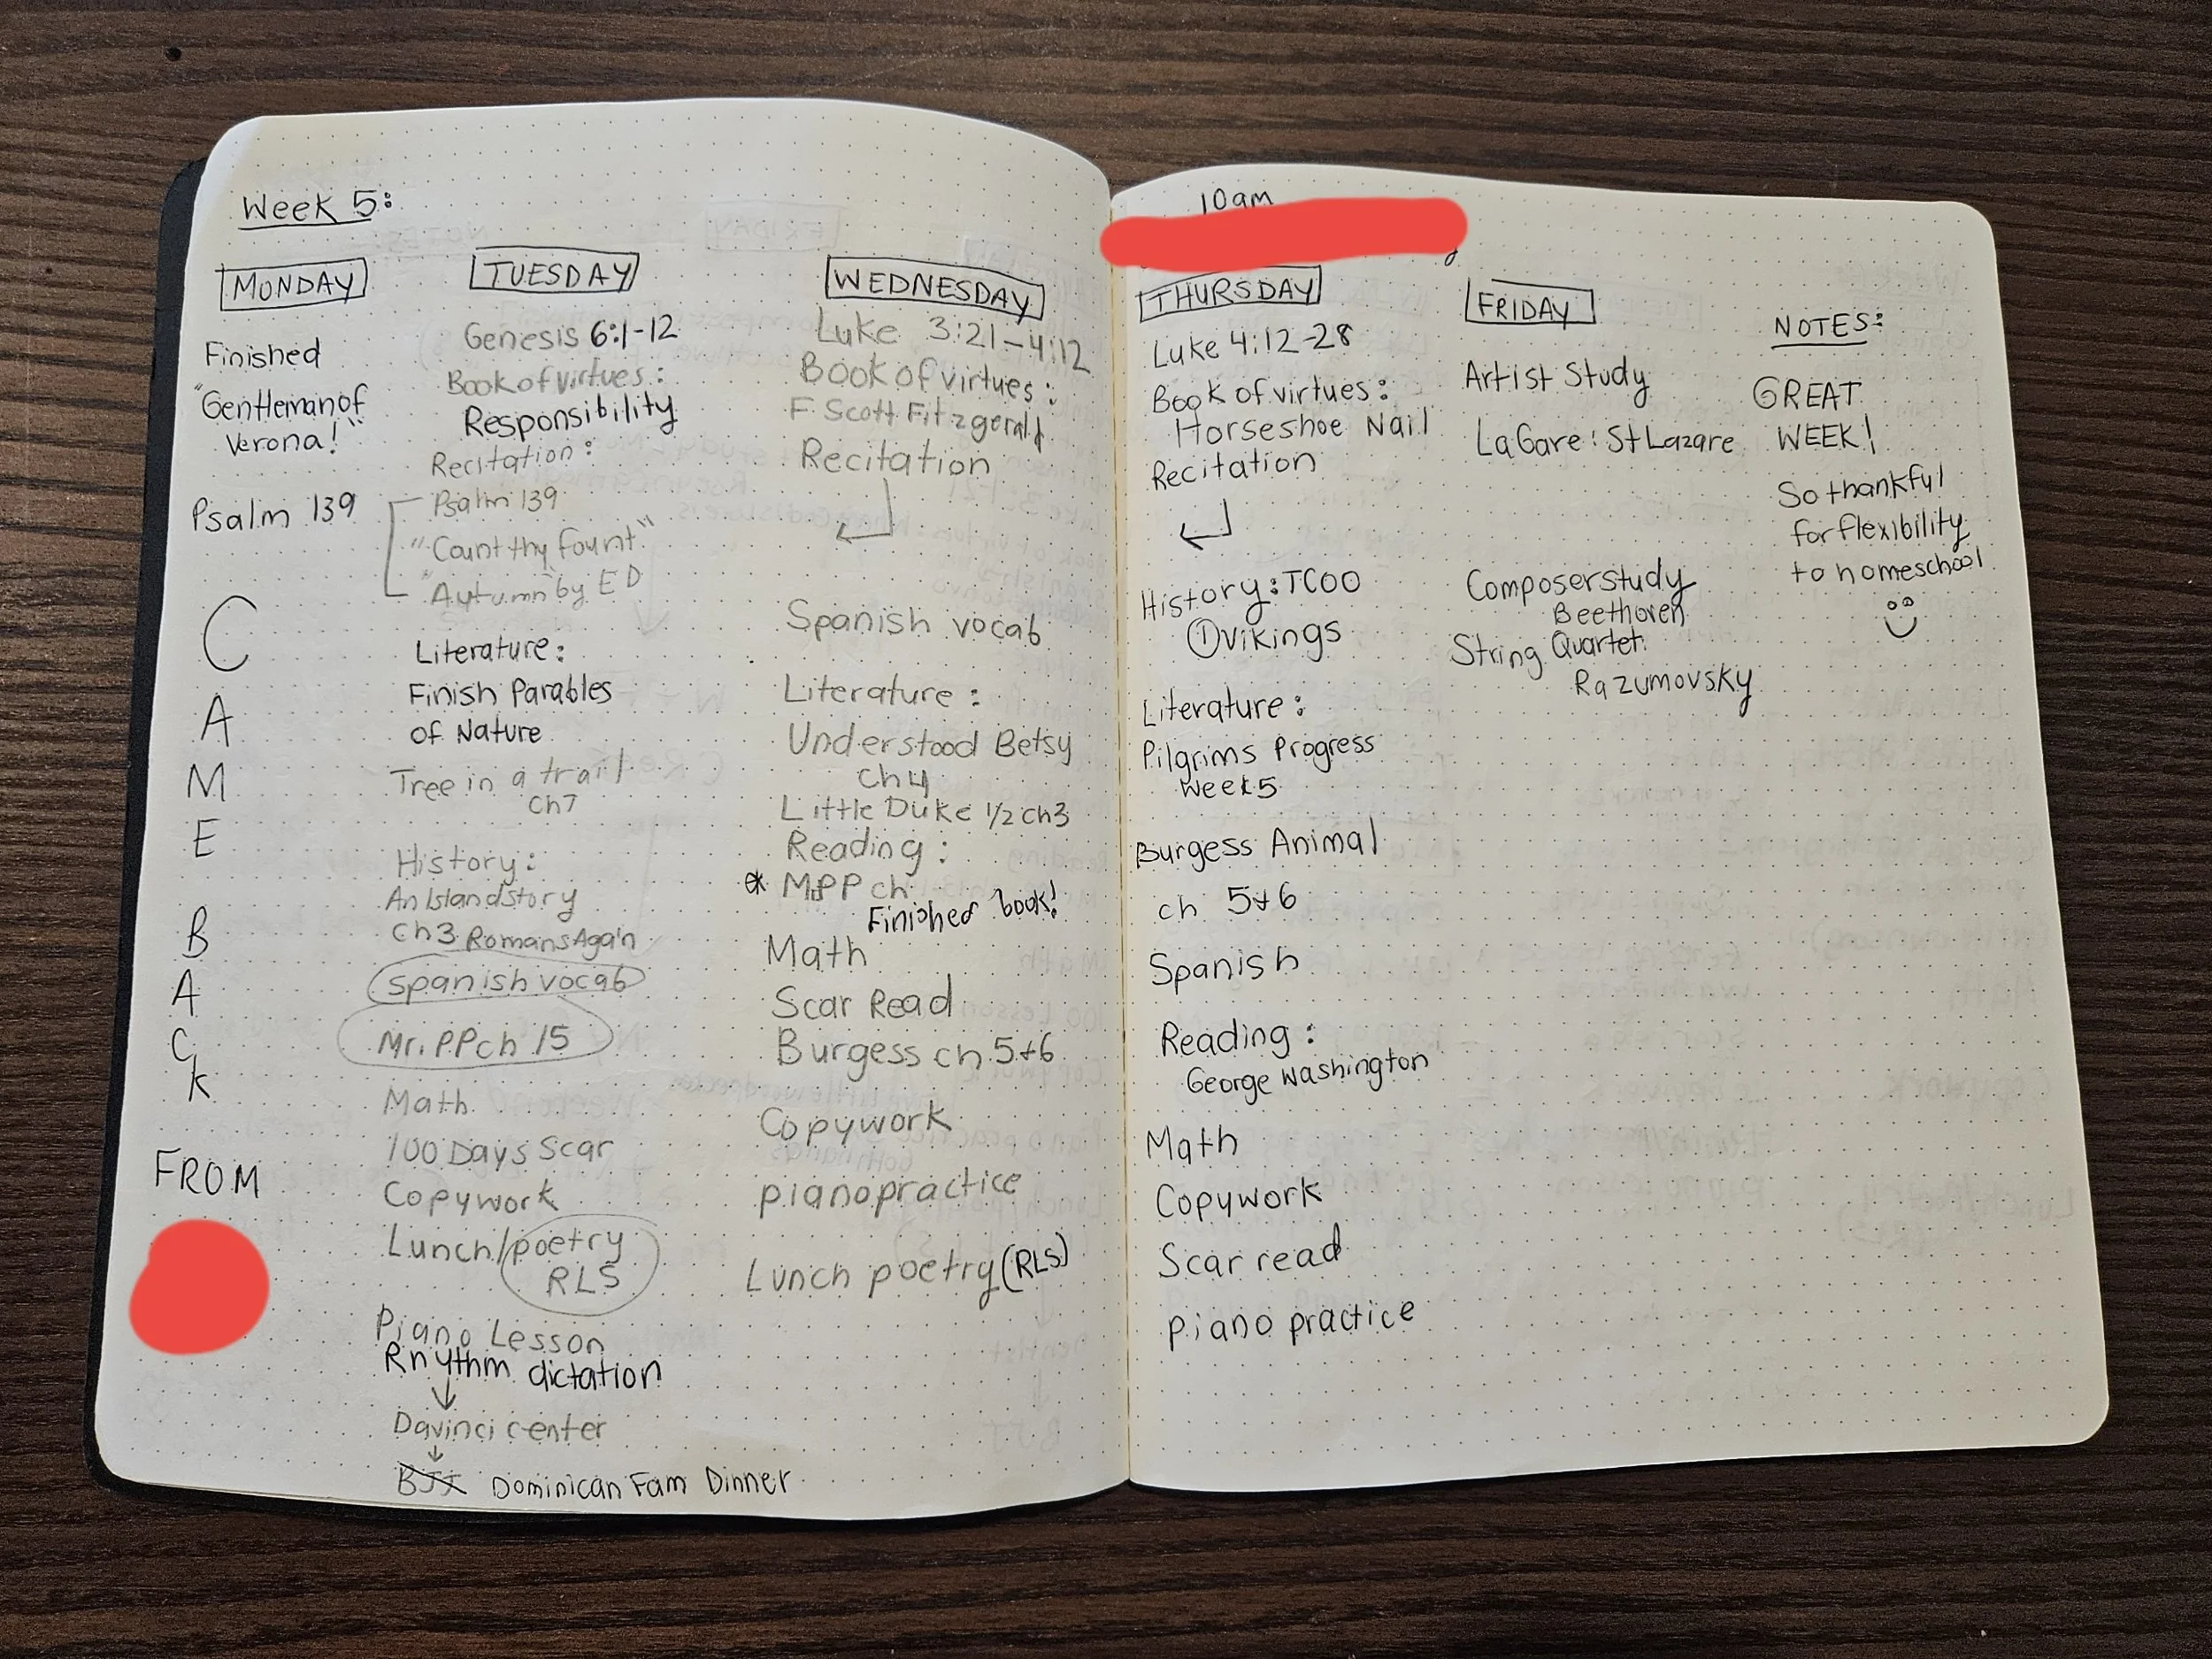 Week 5:
MONDAY
Finished
"Gentleman of
Verona!"
Psalm 139
C
A
M
E
B
A
C
K
FROM
TUESDAY
Genesis 6:1-12
Book of virtues:
Responsibility
Recitation:
Psalm 139
"Count thy fount"
"Autumn" by ED
Literature:
Finish Parables
of Nature
Tree in a trail
Ch7
History:
An Island story
Ch3 Romans Again
Spanish vocab
Mr. PP ch 15
Math
100 Days Scar
Copywork
Lunch/poetry
RLS
Piano Lesson
Rhythm dictation
Davinci center
BJJ Dominican Fam Dinner
WEDNESDAY
Luke 3:21-4:12
Book of virtues:
F Scott Fitzgerald
Recitation
Spanish vocab
Literature:
Understood Betsy
Ch4
Little Duke 1/2 ch3
Reading:
* MPP ch
Finished book!
Math
Scar Read
Burgess ch 5+6
Copywork
piano practice
Lunch poetry (RLS)
10am
THURSDAY
Luke 4:12-28
Book of virtues:
Horseshoe Nail
Recitation
History: TCOO
① Vikings
Literature:
Pilgrims Progress
Week 5
Burgess Animal
ch 5+6
Spanish
Reading:
George Washington
Math
Copywork
Scar read
piano practice
FRIDAY
Artist Study
La Gare: St Lazare
Composer study
Beethoven
String Quartet
Razumovsky
NOTES:
GREAT
WEEK!
So thankful
for flexibility
to homeschool